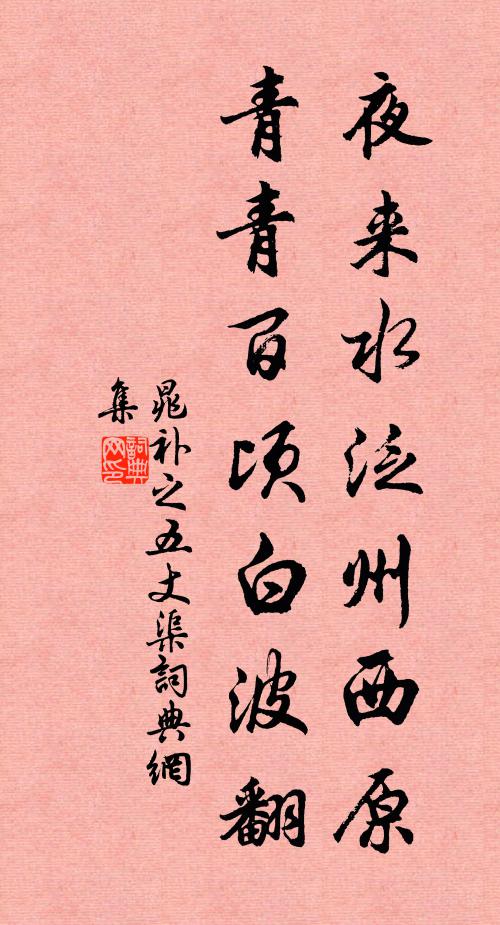 夜来水泛州西原
青青百顷白波翻
晁补之五丈渠詞典網
集
詞典
网印